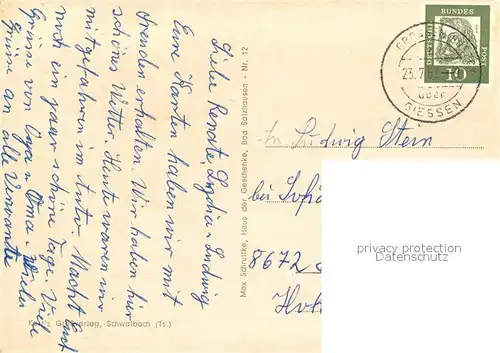 Liebe Renate, Lydia u. Ludwig
Eure Karten haben wir mit
Freuden erhalten. Wir haben hier
schönes Wetter. Heute waren wir
mitgefahren im Auto. Macht Euch
noch ein paar schöne Tage. Viele
Grüsse von Opa u. Oma. Viele
Grüsse an alle Verwante
Max Schruttke, Haus der Geschenke, Bad Salzhausen - Nr. 12
Schwalbach (Ts.)
DEUTSCHE
BUNDES
POST
10
23.7.
über
GIESSEN
Ludwig Stein
bei
8672
privacy protection
Datenschutz